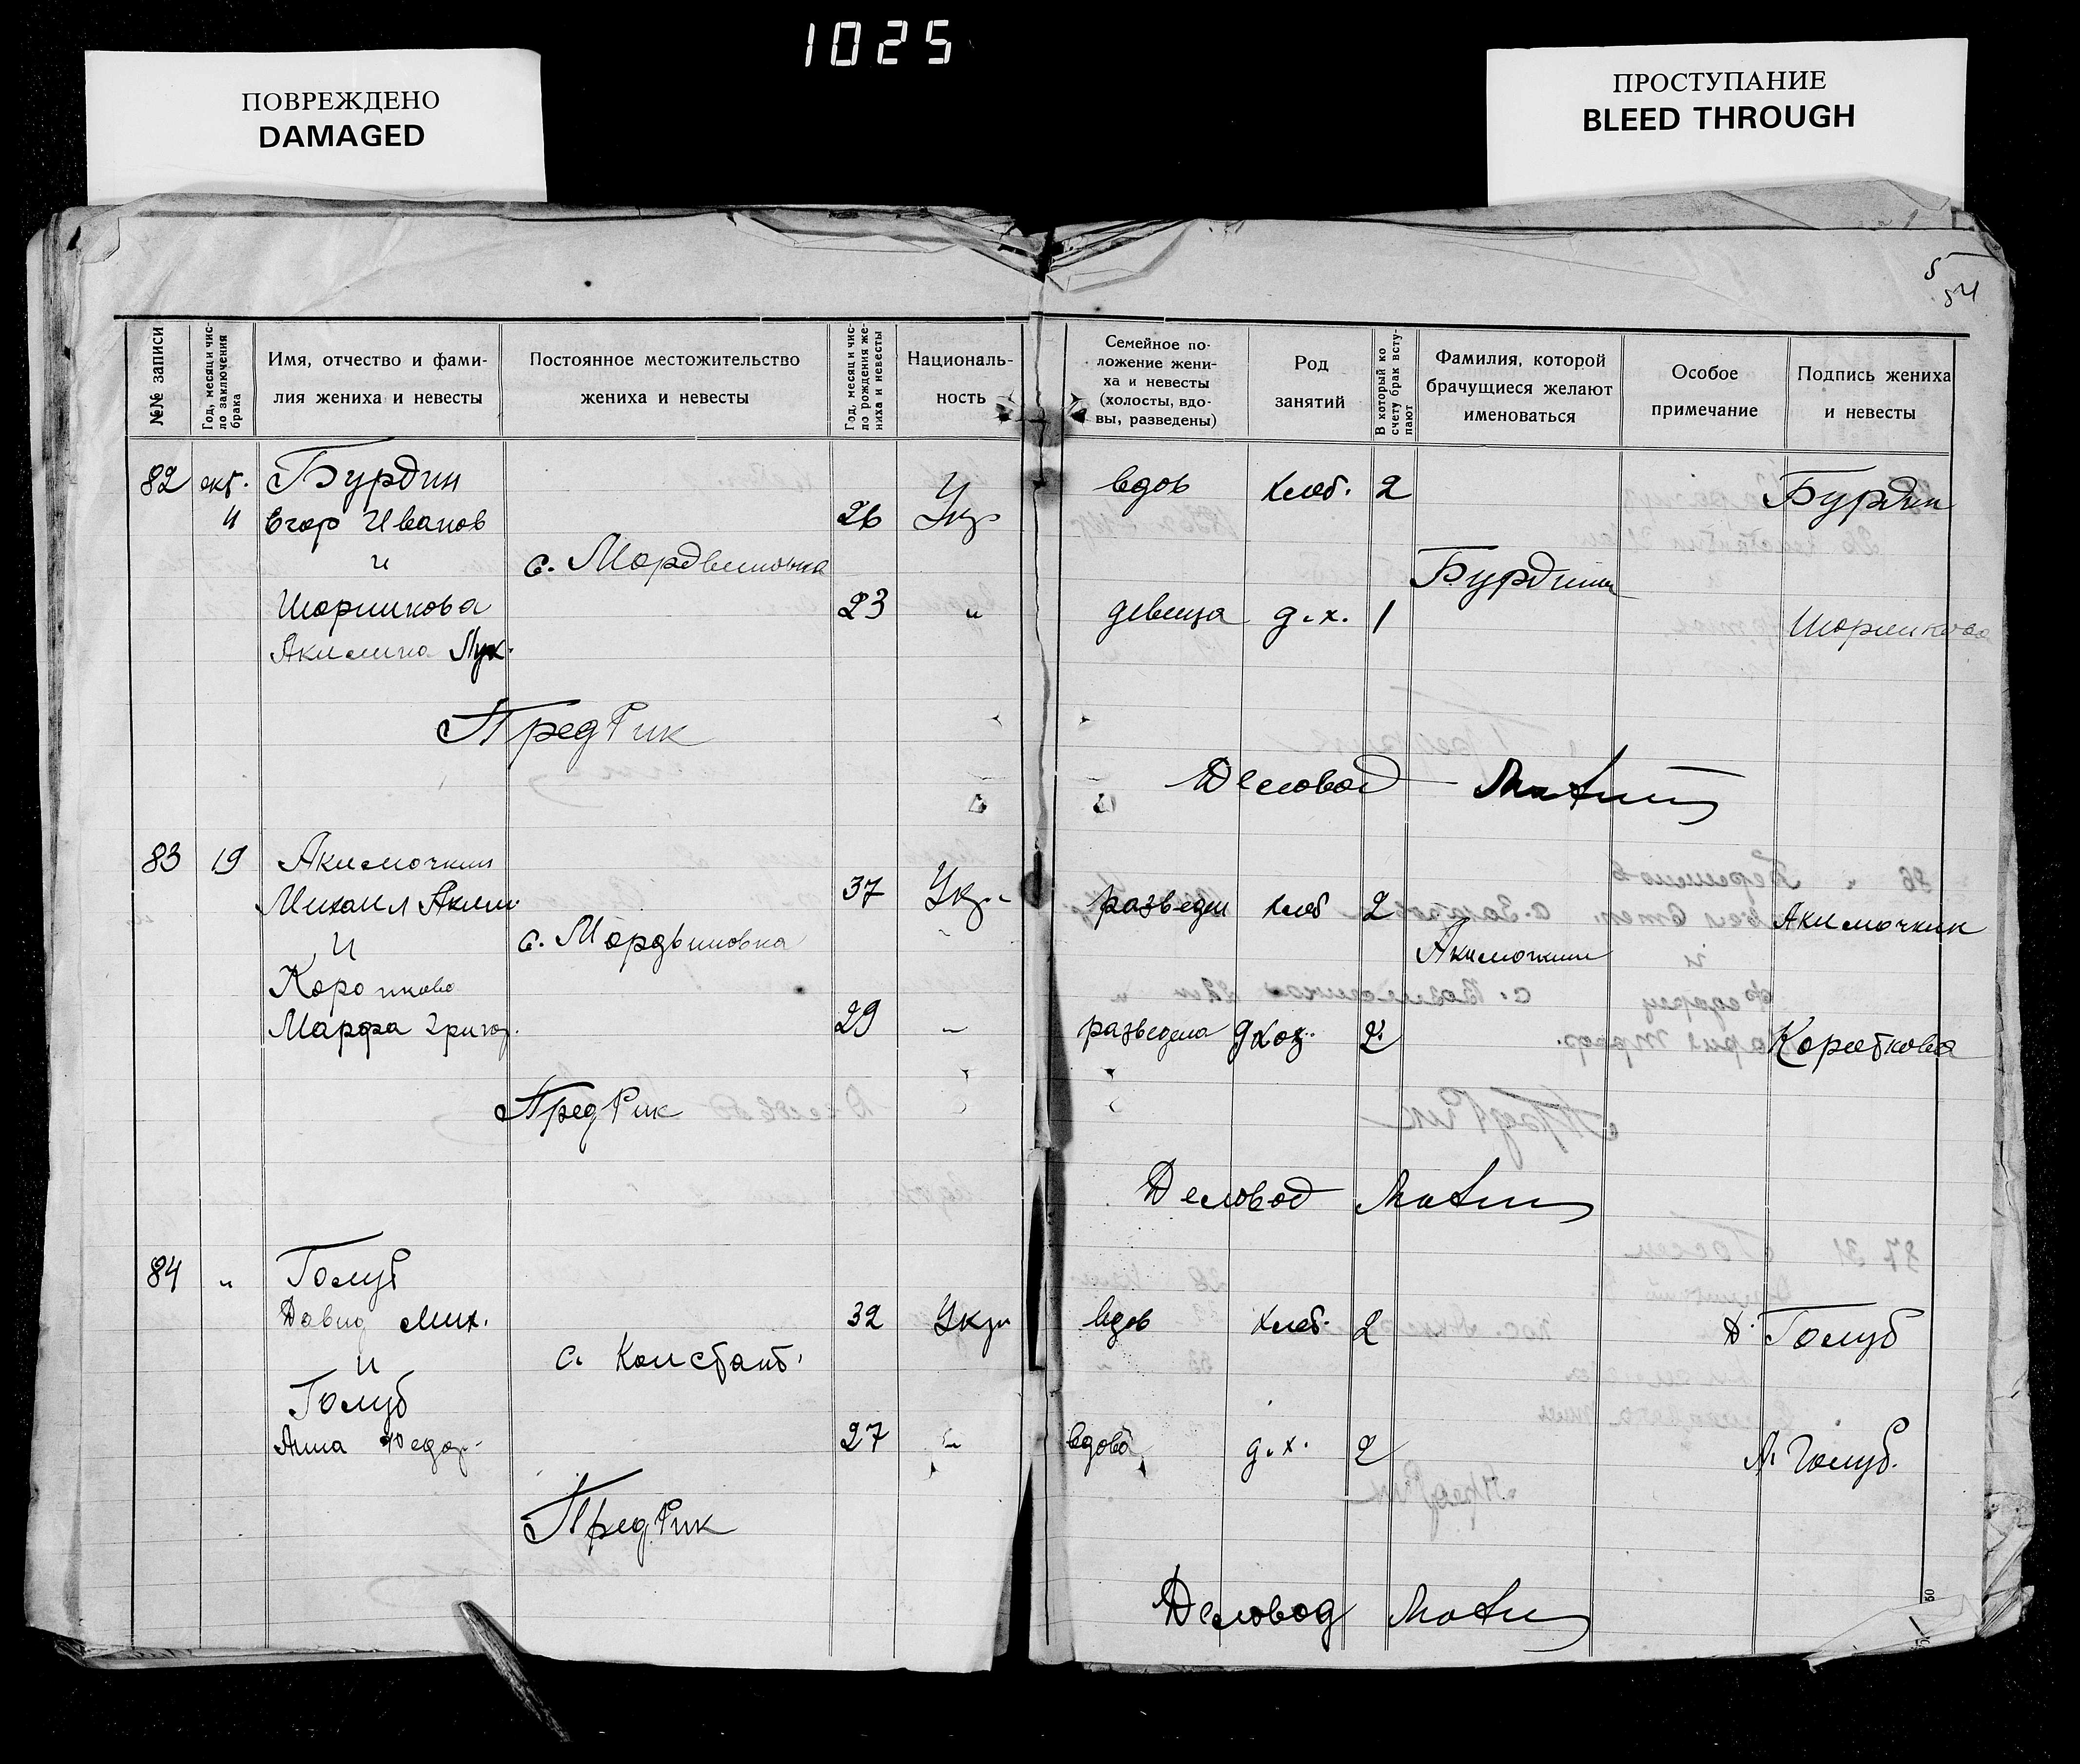 1025
ПОВРЕЖДЕНО
DAMAGED
ПРОСТУПАНИЕ
BLEED THROUGH
5
54
№№ записи
Год, месяц и чис-
ло заключения
брака
Имя, отчество и фами-
лия жениха и невесты
Постоянное местожительство
жениха и невесты
Год, месяц и чис-
ло рождения же-
ниха и невесты
Националь-
ность
Семейное по-
ложение жени-
ха и невесты
(холосты, вдо-
вы, разведены)
Род
занятий
В который ко
счету брак всту-
пают
Фамилия, которой
брачущиеся желают
именоваться
Особое
примечание
Подпись жениха
и невесты
82 окт. Бурдин вдов хлеб. 2 Бурдин
4 Егор Иванов 26 Укр
и с. Мордвиновка Бурдины
Шорникова 23 " девица д.х. 1 Шорникова
Акилина Лук.
ПредРик
Деловод
83 19 Акимочкин
Михаил Аким. 37 Укр. разведен хлеб 2 Акимочкин
и с. Мордвиновка Акимочкин
Короткова
Марфа Григор. 29 " разведена д.хоз. 2 Короткова
ПредРик
Деловод
84 " Голуб
Давид Мих. 32 Укр вдов хлеб. 2 Д. Голуб
и с. Констант.
Голуб
Анна Федор. 27 " вдова д.х. 2 А. Голуб.
ПредРик
Деловод